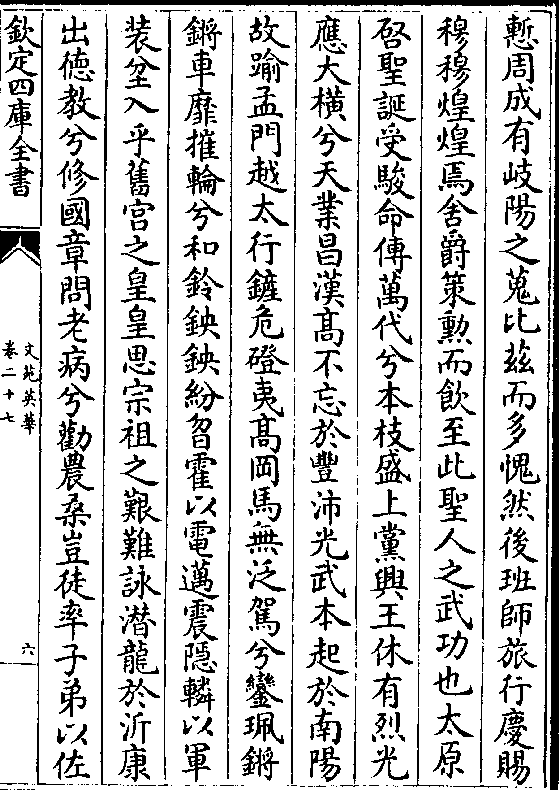 慙周成有岐陽之蒐比茲而多愧然後班師旅行慶賜
穆穆煌煌焉舍爵策勲而飲至此聖人之武功也太原
啓聖誕受駿命傳萬代兮本枝盛上黨興王休有烈光
應大橫兮天業昌漢髙不忘於豐沛光武本起於南陽
故踰孟門越太行鏟危磴夷髙岡馬無泛駕兮鑾珮鏘
鏘車靡摧輪兮和鈴鉠鉠紛曶霍以電邁震隠轔以軍
装坌入乎舊宫之皇皇思宗祖之艱難詠潜龍於沂康
出德教兮修國章問老病兮勸農桑豈徒率子弟以佐
欽定四庫全書
文苑英華
卷二十七
六